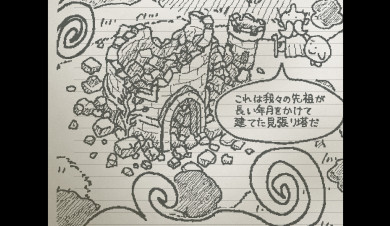 これは我々の先祖が
長い年月をかけて
建てた見張り塔だ